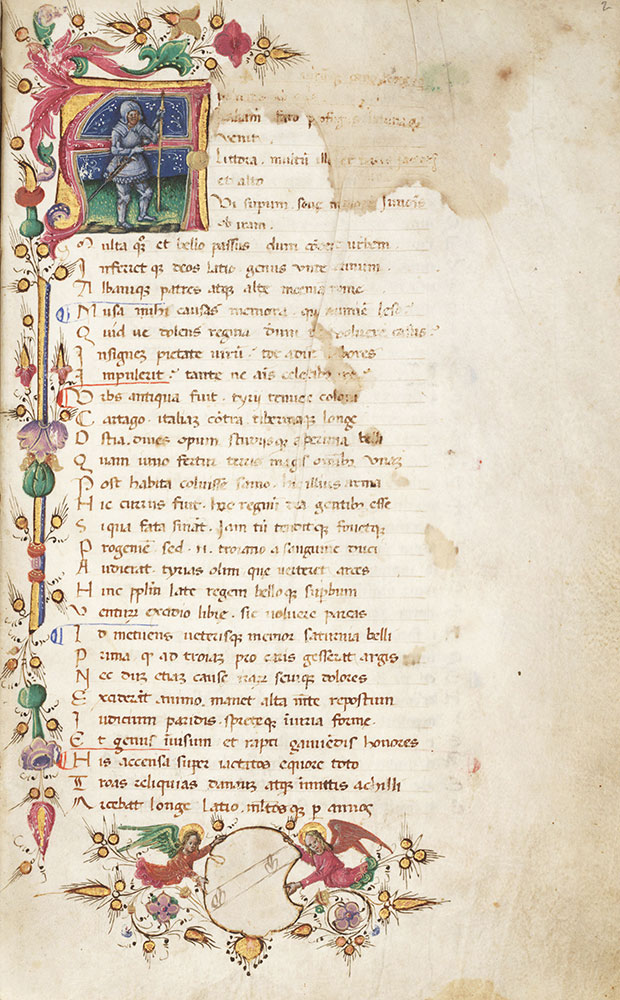 2
A
fato profug
venit
Littora . multū ill et
et alto
Vi supum . seue Junōis
ob iram .
M ulta qꝫ et bello passus dum cōderet urbem .
I nferret qꝫ deos latio genus unde latinum
A lbaniqꝫ patres atqꝫ alte moenia rome
M usa mihi causas memora . quo numine leso
Q uid ve dolens regina deum tot voluere casus
I nsignem pietate virū . tot adire labores
I mpulerit . tante ne aīs celestibꝫ ire
V rbs antiqua fuit . tyrij tenuere coloni
C artago . italiaꝫ cōtra tiberinaqꝫ longe
O stia . diues opum studijsqꝫ asperrima belli
Q uam iuno fertur terris magis omībꝫ unaꝫ
P ost habita coluisse samo . hic illius arma
H ic currus fuit . hoc regnū dea gentibꝫ esse
S i qua fata sinant . Jam tū tenditqꝫ fouetqꝫ
P rogeniē sed . n . troiano a sanguine duci
A udierat . tyrias olim que verteret arces
H inc pplm̄ late regem belloqꝫ supbum
V enturū excidio libie . sic voluere parcas
I d metuens veterisqꝫ memor saturnia belli
P rima qꝫ ad troiaꝫ pro caris gesserat argis
N ec duꝫ etiaꝫ cause iraꝝ seuiqꝫ dolores
E xciderāt animo . manet alta mēte repostum
I udicium paridis . spreteqꝫ iniuria forme .
E t genus inuisum et rapti ganimedis honores
H is accensa super iactatos equore toto
T roas reliquias danaum atqꝫ immitis achilli
A rcebat longe latio . multosqꝫ p annos